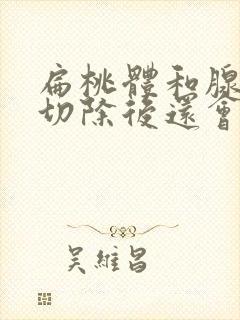 扁桃體和腺
切除後還會
吳維昌